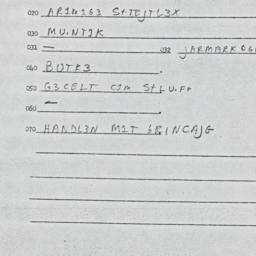 020 AR1M163 S+TEJTL3X
030 MU.NTIK
031 —
032 JARMARK
040 BUTK3
050 G3CELT C1M S+LU.F+
060 —
070 HANDL3N M1T 6RINCAJG